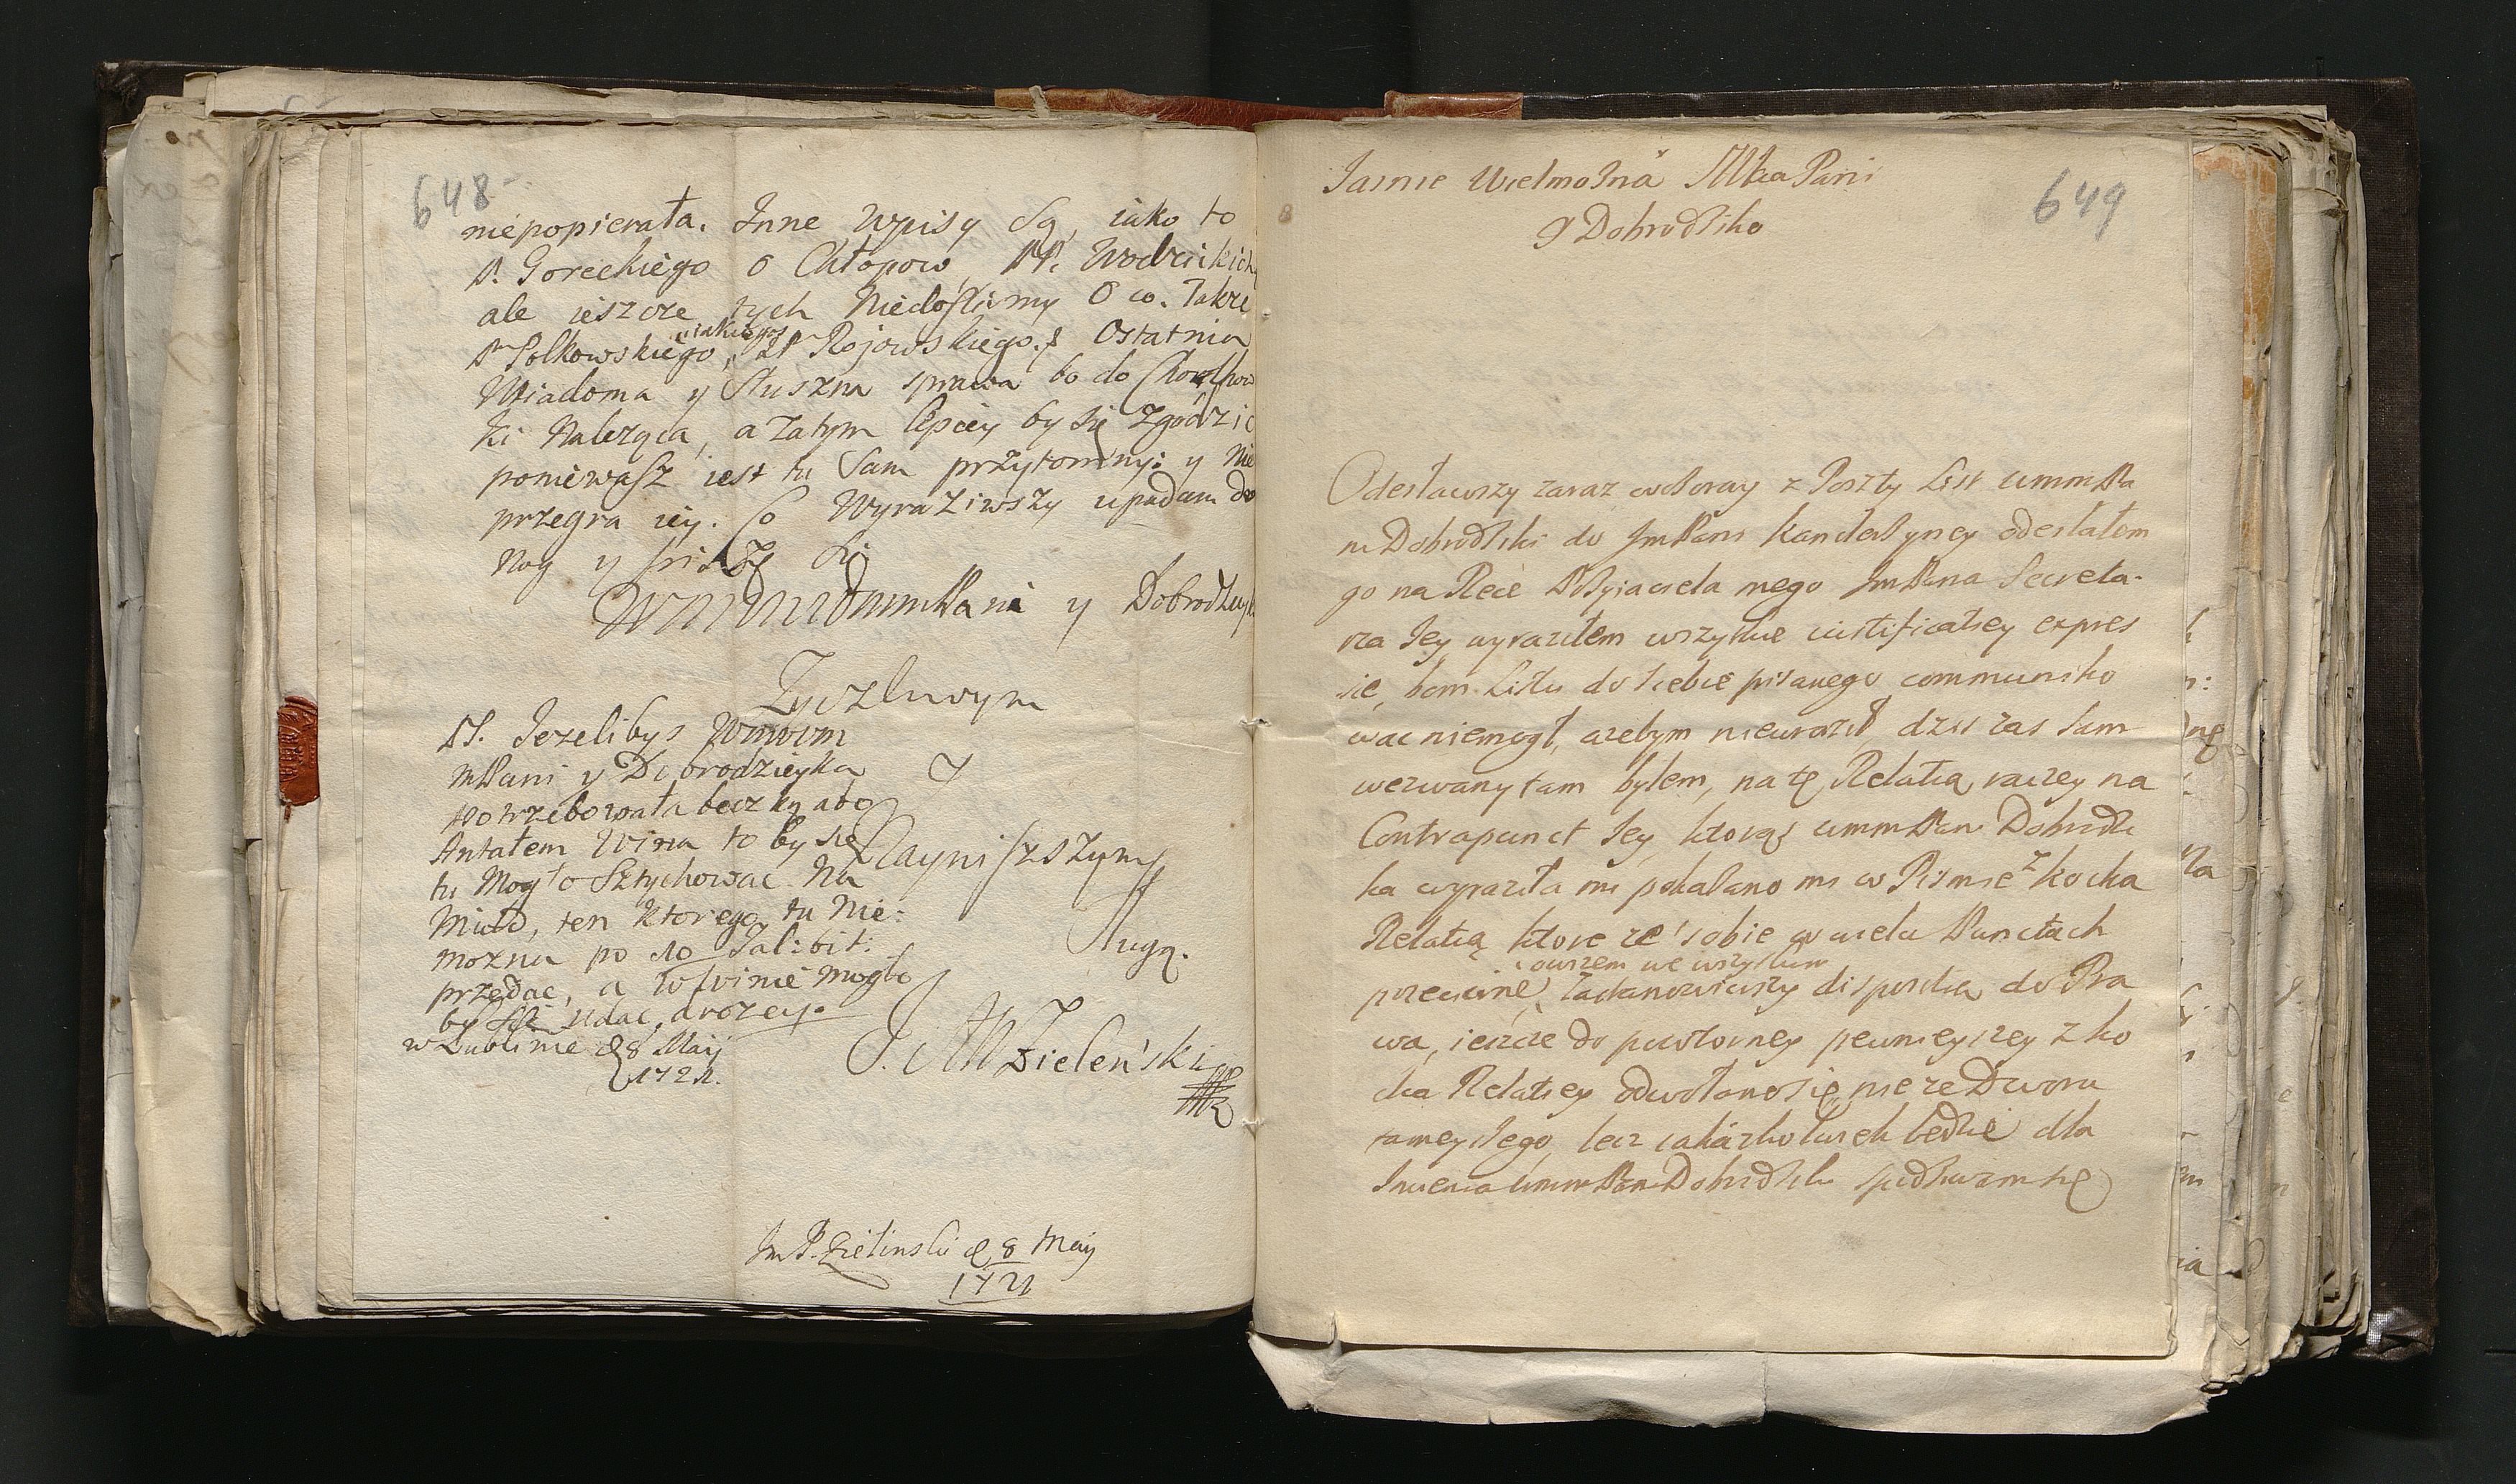 648
niepopierała. Inne wpisy Są, iako to
P. Goreckiego o Chłopow, PP. Wodzickich
ale ieszcze tych Niedoszlismy O co. Takze
P. Polkowskiego, P. Rojowskiego. Ostatnia
Wiadoma y Słuszna sprawa bo do
ki Naleząca, a zatym lepiey by się Zgodzic
poniewasz iest tu Sam przytomny: y Nie
przegra iey. Co Wyraziwszy upadam do
Nog y piszę się
mmPani y Dobrodzieyki
Zyczliwym
PS. Jezelibys
mPani y Dobrodzieyka
Potrzebowała beczky abo
Antałem Wina to by się
tu Mogło Sztychowac Na
Miod, ten ktorego tu Nie:
mozna po 10 Tal: bit:
przedac, a w winie mogło
by się udac drozey.
w Lublinie d 8 Maij
1721.
y
Nayniszszym
Sługą.
Zieleński
Im P. Zielinski d 8 Maij
1721
649
Jasnie Wielmożna Mścia Pani
y Dobrodźiko
Odesławszy zaraz wczoray z Poszty List ummPa
ni Dobrodźiki do JmPani Kanclerzyney odesłałem
go na Ręce Przyiaciela mego JmPana Secreta-
rza Jey wyraziłem wszytkie iustificatiey expres
sie, bom Listu do siebie pisanego communiko
wac niemogł, azebym nieuraził, dzis zas sam
wezwany tam byłem, na tę Relatią raczey na
Contrapunct Jey, ktorąś ummPani Dobrodźi
ka wyraziła mi pokazano mi w Pismie z Kocka
Relatią ktore ze sobie w wielu Punctach
owszem we wszytkim
przeciwne, zastanowiwszy disposicią do Pra
wa, ieszcze do powtorney pewnieyszey z Ko
cka Relatiey odwołano się, nie ze Dworu
tameyszego, lecz iakażkolwiek będzie dla
Imienia ummPani Dobrodźiki spodziewam się